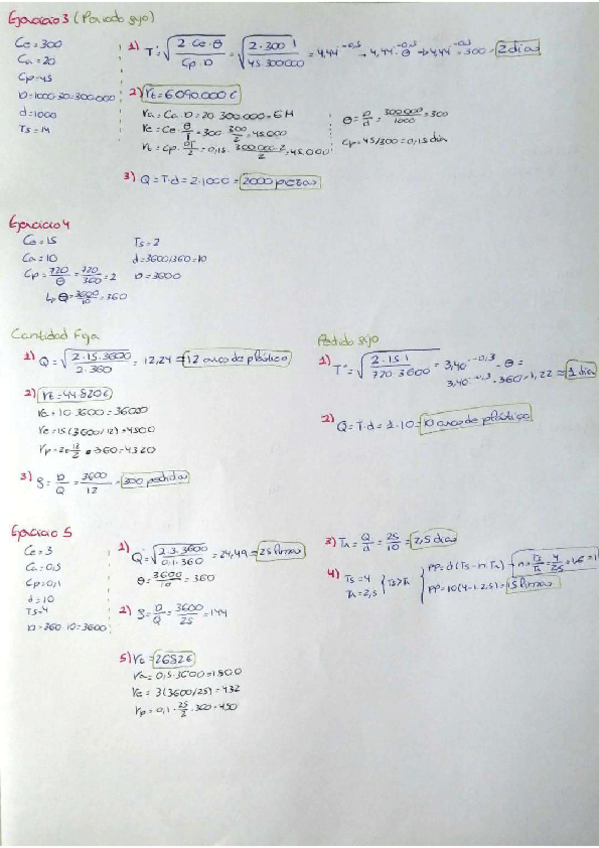 Ejercicio 3 (Periodo fijo)
Ce = 300
Ca = 20
Cp = 45
D = 1000·30 = 300.000
d = 1000
Ts = 14
1) T = √(2·Ce·θ / Cp·D) = √(2·300·1 / 45·300.000) = 4,44^-0,3 → 4,44^-0,3·θ → 4,44^-0,3·300 = 2 días
2) Vt = 6090.000€
Va = Ca·D = 20·300.000 = 6M
Ve = Ce·θ/T = 300·300/2 = 45.000
Vt = Cp·DT/2 = 0,15·300.000·2/2 = 45.000
θ = D/d = 300.000/1000 = 300
Cp = 45/300 = 0,15 día
3) Q = T·d = 2·1000 = 2000 piezas
Ejercicio 4
Ce = 15
Ca = 10
Cp = 720/θ = 720/360 = 2
↳ θ = 3600/10 = 360
Ts = 2
d = 3600/360 = 10
D = 3600
Cantidad Fija
1) Q = √(2·15·3600 / 2·360) = 12,24 = 12 arcos de plástico
2) Vt = 44.820€
Va = 10·3600 = 36000
Ve = 15(3600/12) = 4500
Vp = 2·12/2·360 = 4320
3) S = D/Q = 3600/12 = 300 pedidos
Pedido fijo
1) T = √(2·15·1 / 720·3600) = 3,40^-0,3·θ =
3,40^-0,3·360 = 1,22 = 1 día
2) Q = T·d = 1·10 = 10 arcos de plástico
Ejercicio 5
Ce = 3
Ca = 0,5
Cp = 0,1
d = 10
Ts = 4
D = 360·10 = 3600
1) Q = √(2·3·3600 / 0,1·360) = 24,49 = 25 firmas
θ = 3600/10 = 360
2) S = D/Q = 3600/25 = 144
5) Vt = 2682€
Va = 0,5·3600 = 1800
Ve = 3(3600/25) = 432
Vp = 0,1·25/2·360 = 450
3) TA = Q/d = 25/10 = 2,5 días
4) Ts = 4
TA = 2,5
Ts > TA
PP = d(Ts - n·TA) → n = Ts/TA = 4/2,5 = 1,6 = 1
PP = 10(4 - 1·2,5) = 15 firmas